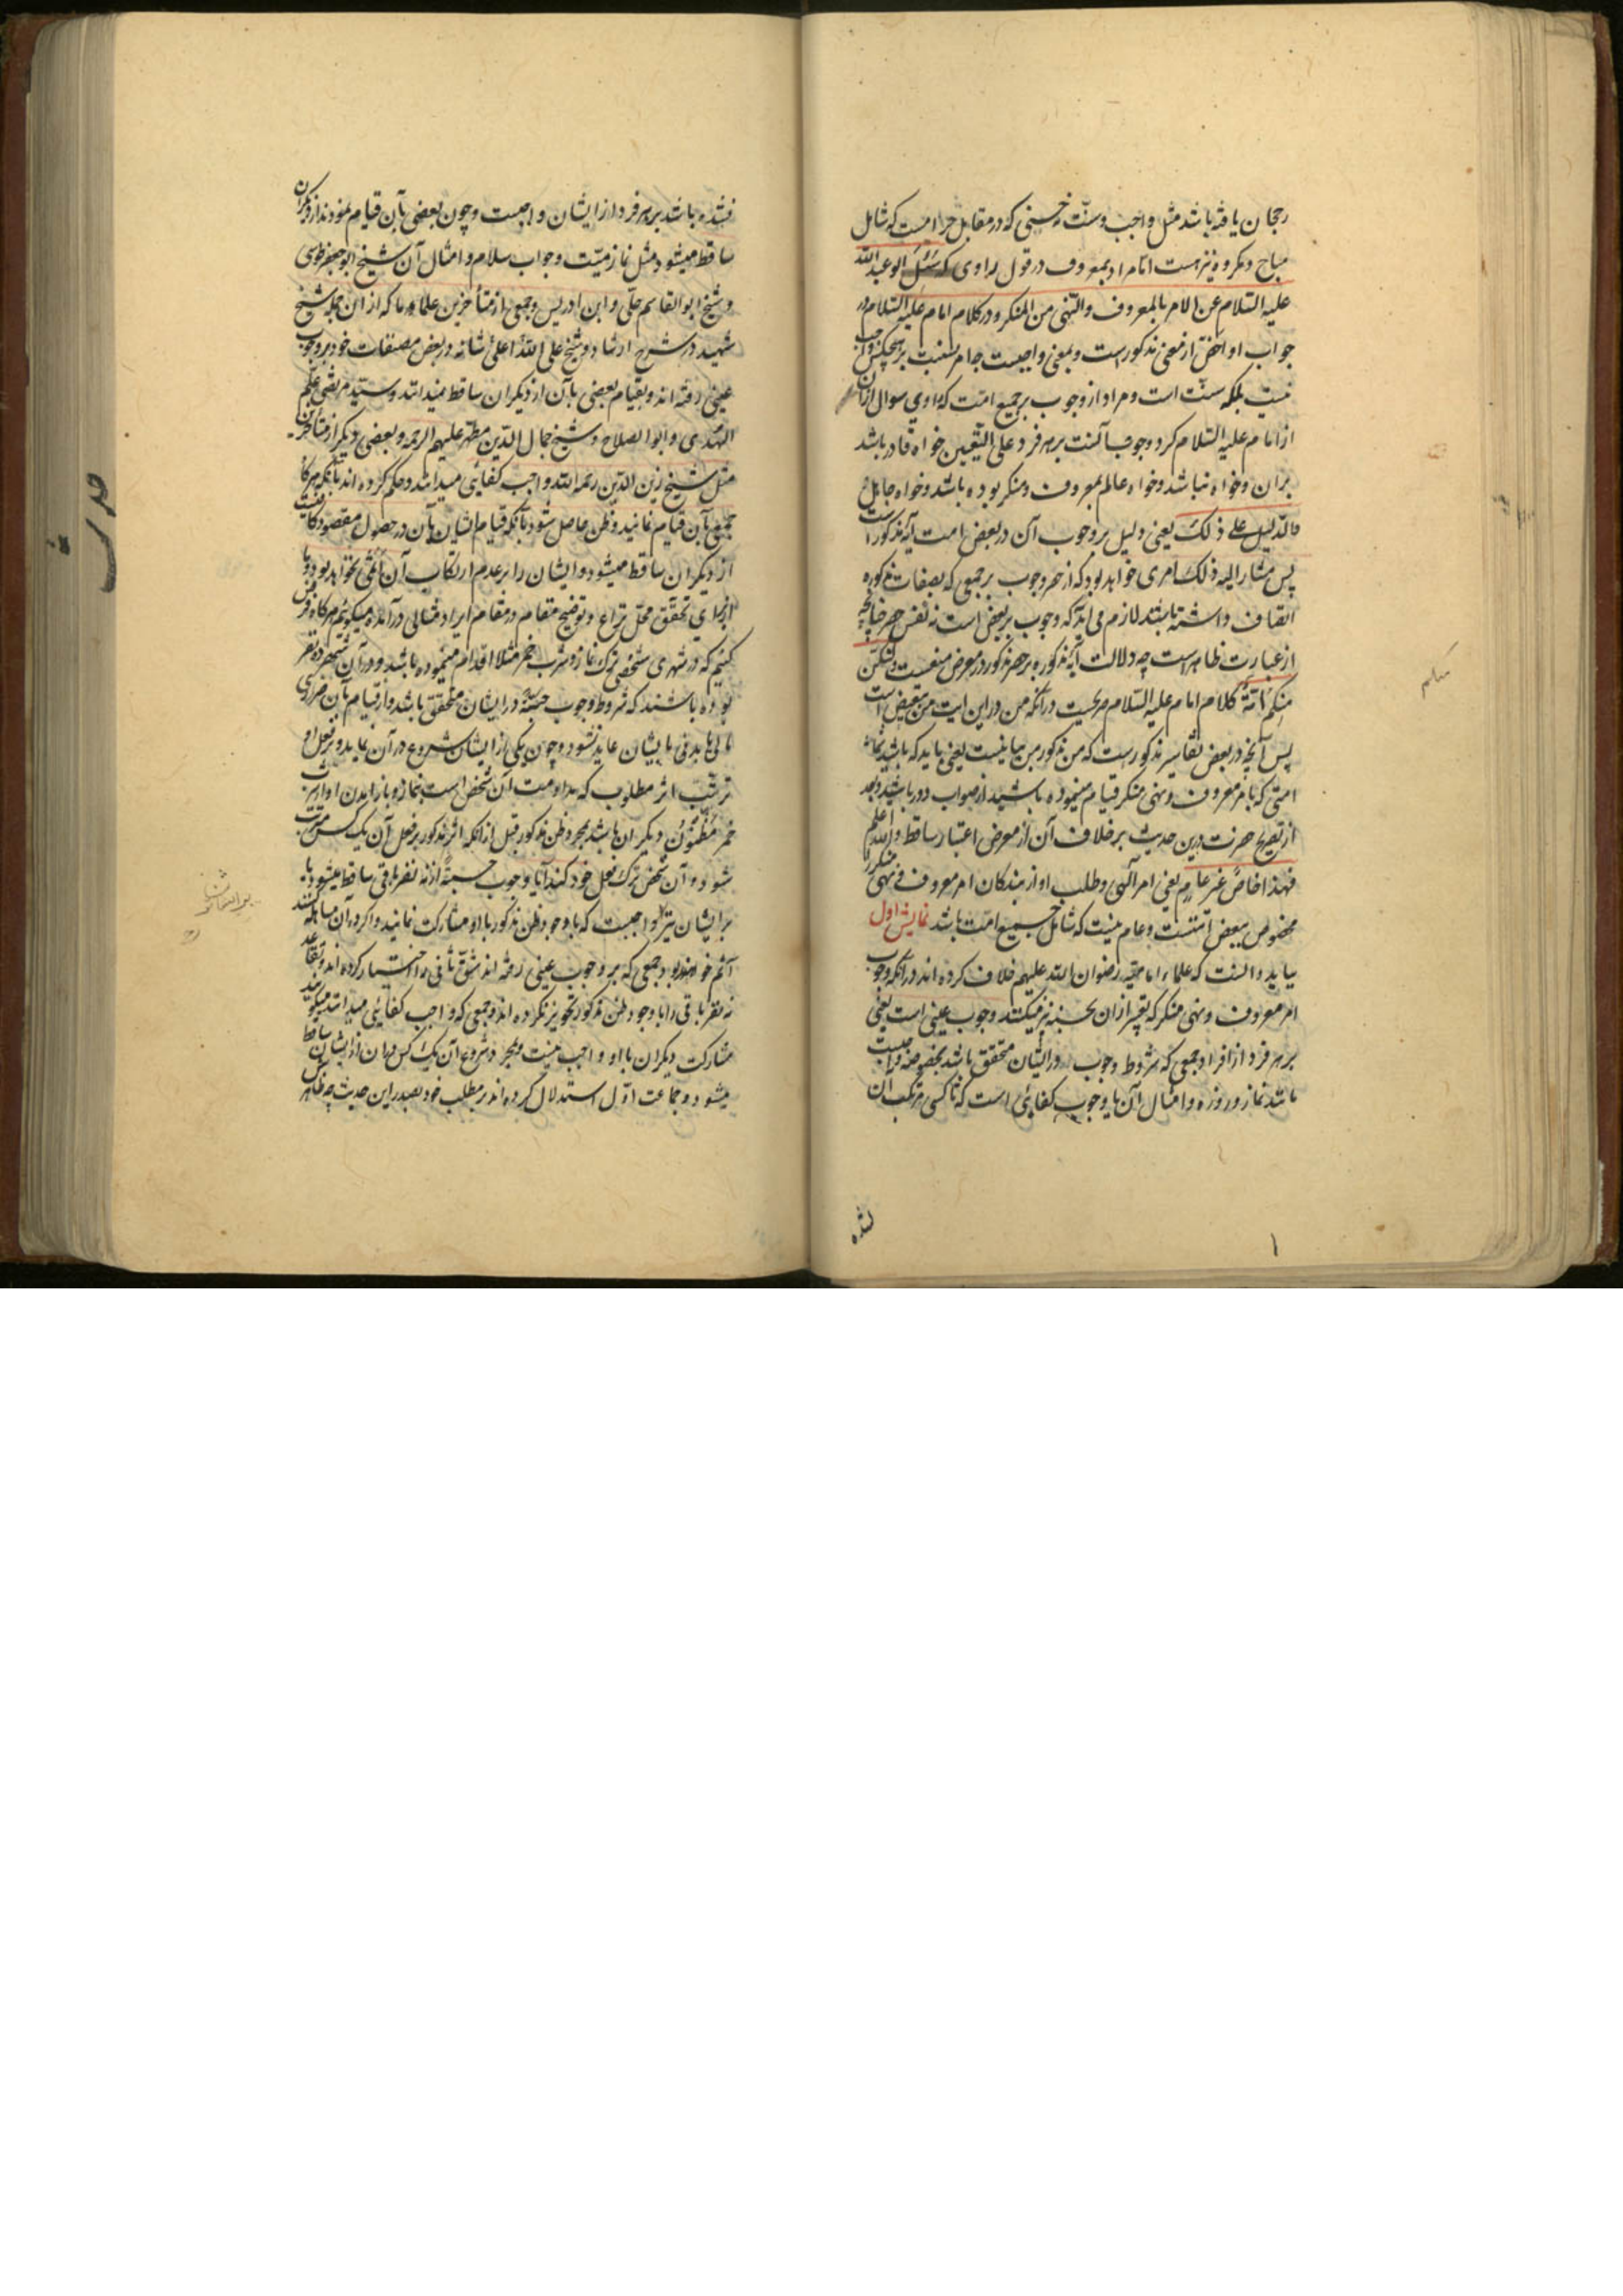 رجحان یافته باشد مثل واجب و سنت و حسنی که در مقابل حرامست که شامل
مباح و مکروه نیز هست امّا مراد بمعروف در قول راوی که سُئل ابو عبد الله
علیه السّلام عن الامر بالمعروف والنّهی من المنکر و در کلام امام علیه السّلام در
جواب او اخصّ از معنی مذکورست و بمعنی واجبست چه امر بسنّت بر هیچکس واجب
نیست بلکه سنّت است و مراد از وجوب بر جمیع امّت که راوی سوال از آن
از امام علیه السّلام کرد وجوب آنست بر هر فرد علی التّعیین خواه قادر باشد
بر آن و خواه نباشد و خواه عالم بمعروف و منکر بوده باشد و خواه جاهل
والدّلیل علی ذلک یعنی دلیل بر وجوب آن در بعض امت آیه مذکور است
پس مشار الیه ذلک امری خواهد بود که از حصر وجوب بر جمعی که بصفات مذکوره
اتصاف داشته باشند لازم می آید که وجوب بر بعض است نه نفس حصر چنانچه
از عبارت ظاهرست چه دلالت آیه مذکوره بر حصر مذکور در معرض منعست ولتکن
منکم امّة کلام امام علیه السّلام صریحست در آنکه من در این آیت من تبعیض است
پس آنچه در بعض تفاسیر مذکورست که من مذکور من بیانیست یعنی باید که باشید شما
امّتی که بامر معروف و نهی منکر قیام مینموده باشید از صواب دور باشد و بعد
از تصریح حضرت درین حدیث بر خلاف آن از معرض اعتبار ساقط والله اعلم
فهذا خاصٌّ غیر عامٍ یعنی امر الهی و طلب او از بندگان امر معروف و نهی منکر را
مخصوص ببعض امّتست و عام نیست که شامل جمیع امّت باشد نمایش اول
بباید دانست که علماء امامیّه رضوان الله علیهم خلاف کرده اند در آنکه وجوب
امر معروف و نهی منکر که تعبیر از آن بحسبه نیز میکنند وجوب عینی است یعنی
بر هر فرد از افراد جمعی که شروط وجوب در ایشان متحقق باشد بخصوصه واجبست
مانند نماز و روزه و امثال آن یا وجوب کفائی است که تا کسی مرتکب آن
نشده
نشده باشد بر هر فرد از ایشان واجبست و چون بعضی بآن قیام نمودند از دیگران
ساقط میشود مثل نماز میّت و جواب سلام و امثال آن شیخ ابو جعفر طوسی
و شیخ ابو القاسم حلّی و ابن ادریس و جمعی از متأخرین علماء ما که از آن جمله شیخ
شهید در شرح ارشاد و شیخ علی اعلی الله شانه در بعض مصنفات خود بر وجوب
عینی رفته اند و بقیام بعضی بآن از دیگران ساقط نمیدانند و سیّد مرتضی علم
الهُدی و ابو الصلاح و شیخ جمال الدّین مطهّر علیهم الرحمه و بعضی دیگر از متأخرین
مثل شیخ زین الدّین رحمه الله واجب کفائی میدانند و حکم کرده اند بآنکه هرگاه
جمعی بآن قیام نمایند و ظن حاصل شود بآنکه قیام ایشان بآن در حصول مقصود کافیست
از دیگران ساقط میشود و ایشان را بر عدم ارتکاب آن اثمی نخواهد بود و ما
از برای تحقّق محلّ نزاع و توضیح مقام در مقام ایراد مثالی در آمده میگوئیم هرگاه فرض
کنیم که در شهری شخصی بترک نماز و شرب خمر مثلا اقدام مینموده باشد و در آن شهر ده نفر
بوده باشند که شروط وجوب حسبه در ایشان متحقق باشد و از قیام بآن ضرری
مالی یا بدنی بایشان عاید نشود و چون یکی از ایشان شروع در آن نماید و بر فعل او
ترتّب اثر مطلوب که مداومت آن شخص است بنماز و باز آمدن او از شرب
خمر مظنُون دیگران باشد بمجرد ظن مذکور قبل از آنکه اثر مذکور بر فعل آن یک کس مترتب
شود و آن شخص ترک فعل خود کند آیا وجوب حسبةً از نه نفر باقی ساقط میشود یا
بر ایشان نیز واجبست که با وجود ظن مذکور با او مشارکت نمایند و اگر در آن مساهله کنند
آثم خواهند بود جمعی که بر وجوب عینی رفته اند شقّ ثانی را اختیار کرده اند و تقاعد
نه نفر باقی را با وجود ظن مذکور تجویز نکرده اند و جمعی که واجب کفائی میدانند میگویند
مشارکت دیگران با او واجب نیست و بمجرد شروع آن یک کس در آن از ایشان ساقط
میشود و جماعت اوّل استدلال کرده اند بر مطلب خود بصدر این حدیث چه ظاهرش